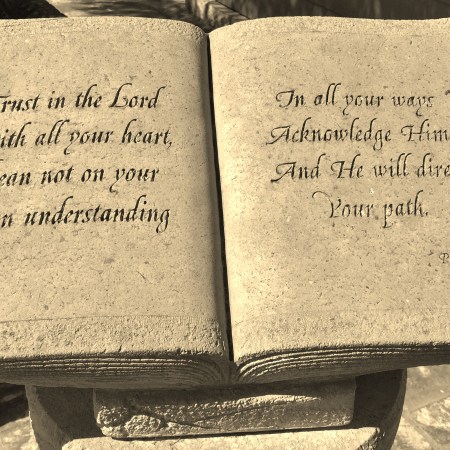 Trust in the Lord
ith all your heart,
ean not on your
n understanding
In all your ways
Acknowledge Him
And He will dire
Your path.
P